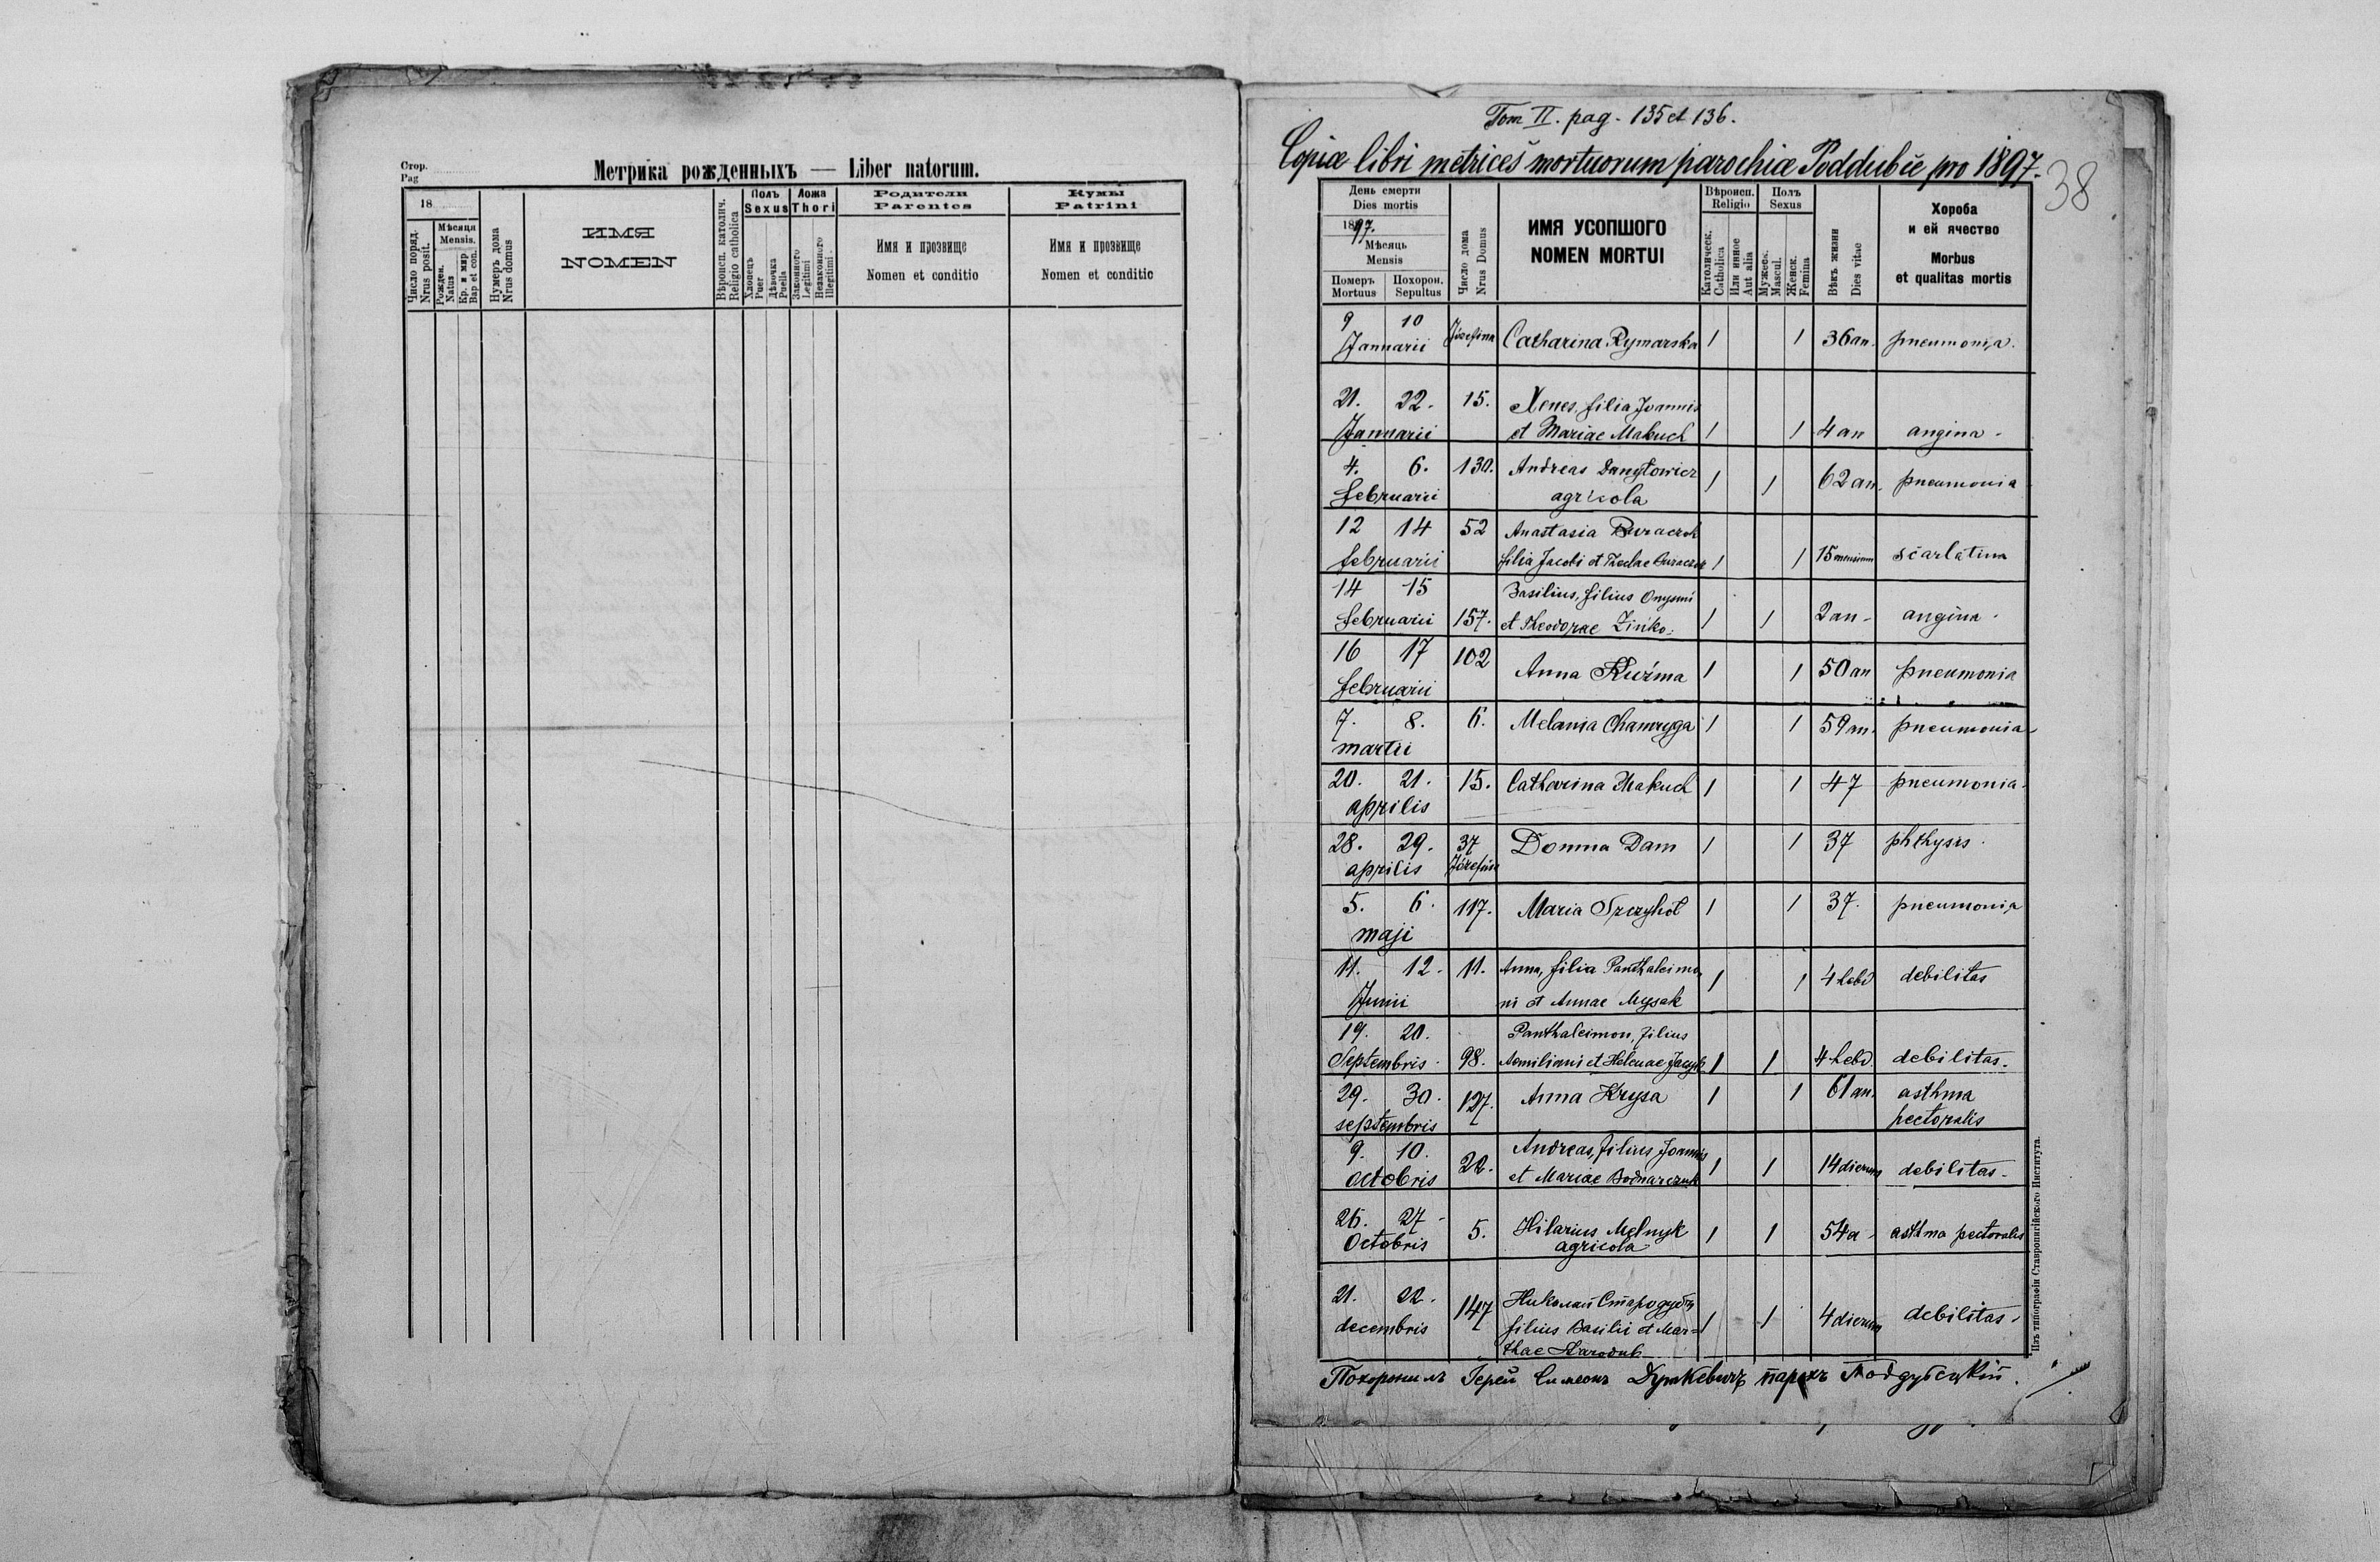 Стор.
Pag
Метрика рожденныхъ — Liber natorum.
18
Число поряд.
Nrus posit.
Мѣсяця
Mensis.
Рожден.
Natus
Кр. и мир.
Bap et con.
Нумеръ дома
Nrus domus
ИМЯ
NOMEN
Вѣроисп. католич.
Religio catholica
Полъ
Sexus
Хлопець
Puer
Дѣвочка
Puella
Ложа
Thori
Законного
Legitimi
Незаконного
Illegitimi.
Родители
Parentes
Имя и прозвище
Nomen et conditio
Кумы
Patrini
Имя и прозвище
Nomen et conditio
Tom II. pag. 135 et 136.
Copia libri metrices mortuorum parochiae Poddubce pro 1897.
38
День смерти
Dies mortis
1897.
Мѣсяць
Mensis
Померъ
Mortuus
Похорон.
Sepultus
Число дома
Nrus Domus
ИМЯ УСОПШОГО
NOMEN MORTUI
Вѣроисп.
Religio
Католическ.
Catholica
Или инное
Aut alia
Полъ
Sexus
Мужеск.
Mascul.
Женск.
Femina
Вѣкъ жизни
Dies vitae
Хороба
и ей ячество
Morbus
et qualitas mortis
9 10 Józefina Catharina Rymarska 1 1 36 an. pneumonia.
Januarii
21. 22. 15. Xenes, filia Joannis
Januarii et Mariae Makuch 1 1 4 an angina
4. 6. 130. Andreas Danyłowicz 1 1 62 an. pneumonia
februarii agricola
12 14 52 Anastasia Buraczok
februarii filia Jacobi et Theclae Buraczok 1 1 15 mensium scarlatina
14 15 Basilius, filius Onysimi
februarii 157. et Theodorae Zinko. 1 1 2 an angina
16 17 102 Anna Kuźma 1 1 50 an pneumonia
februarii
7. 8. 6. Melania Chamryga 1 1 59 an. pneumonia
martii
20. 21. 15. Catharina Makuch 1 1 47 pneumonia.
aprilis
28. 29. 37 Domna Dam 1 1 37 phthysis.
aprilis Józefina
5. 6. 117. Maria Szczyhoł 1 1 37. pneumonia
maji
11. 12. 11. Anna, filia Panthaleimo
Junii ni et Annae Mysak 1 1 4 hebd debilitas
19. 20. Panthaleimon, filius
Septembris 98. Aemiliani et Helenae Jacyk 1 1 4 hebd. debilitas.
29. 30. 127. Anna Krysa 1 1 61 an. asthma
septembris pectoralis
9. 10. 22. Andreas, filius Joannis
octobris et Mariae Bodnarczuk 1 1 14 dierum debilitas.
26. 27 5. Hilarius Melnyk 1 1 54 a asthma pectoralis
Octobris agricola
21. 22. 147 Николай Стародубъ
decembris filius Basilii et Mar= 1 1 4 dierum debilitas
thae Starodub
Похоронилъ Іерей Симеонъ парохъ Поддубецкій.
Изъ типографіи Ставропигійского Института.